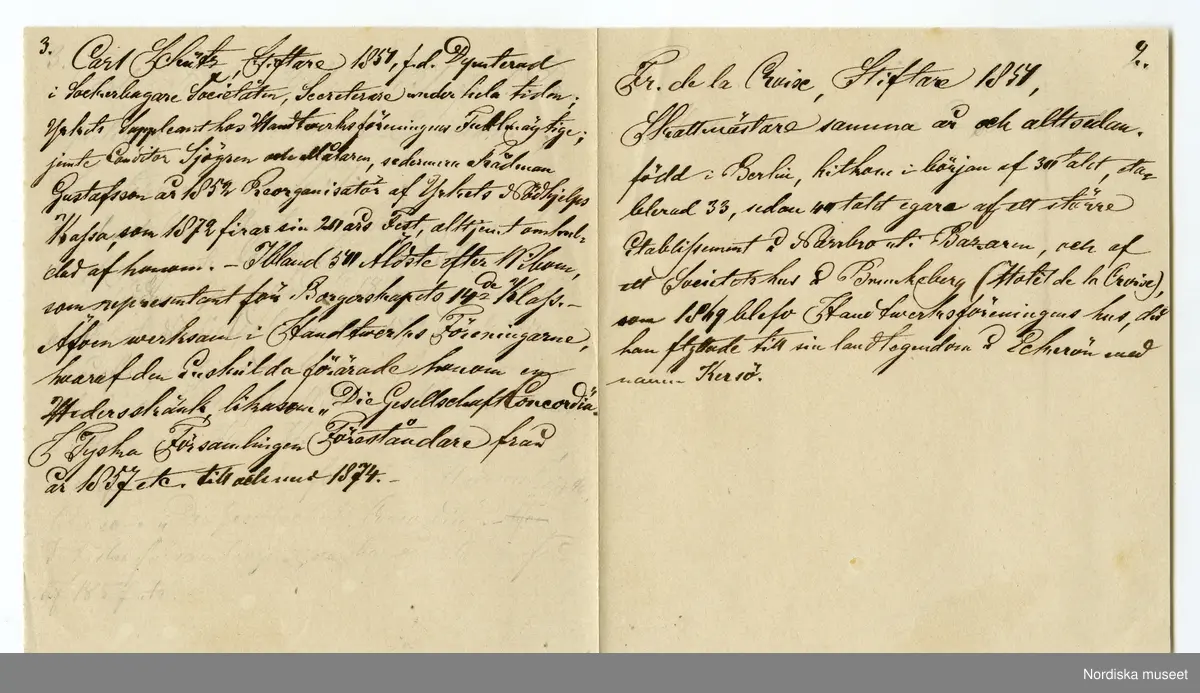 3.
Carl Schütz, Stiftare 1851, f.d. Deputerad
i Sockerbagare Societäten, Secreterare under hela tiden;
Yrkets Suppleant hos Handtwerksföreningens Fullmägtige;
jemte Conditor Sjögren och Målaren, sedermera Rådman
Gustafsson år 1852 Reorganisatör af Yrkets Nödhjelps
Kassa, som 1872 firar sin 20 års Fest, alltjemt omhul-
dad af honom. – Ibland 50 Äldste efter Wilson,
som representant för Borgerskapets 14de Klass. –
Äfven werksam i Handtwerks Föreningarne,
hvaraf den enskilda förärade honom en
Hedersskänk, likasom „Die Gesellschaft Concordia".
I Tyska Församlingen Föreståndare från
år 1857 etc. till och med 1874. –
4.
Fr. de la Croix, Stiftare 1851,
Skattmästare samma år och allt sedan.
född i Berlin, hitkom i början af 30 talet, eta-
blerad 33, sedan 40 talet egare af ett större
Etablissement å Norrbro uti Bazaren, och af
ett Societetshus å Brunkeberg (Hotel de la Croix),
som 1869 blefv Handtwerksföreningens hus, då
han flyttade till sin landtegendom å Eckerön med
namn Kersö.
Nordiska museet